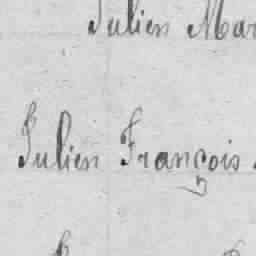 Julien Mar
Julien François